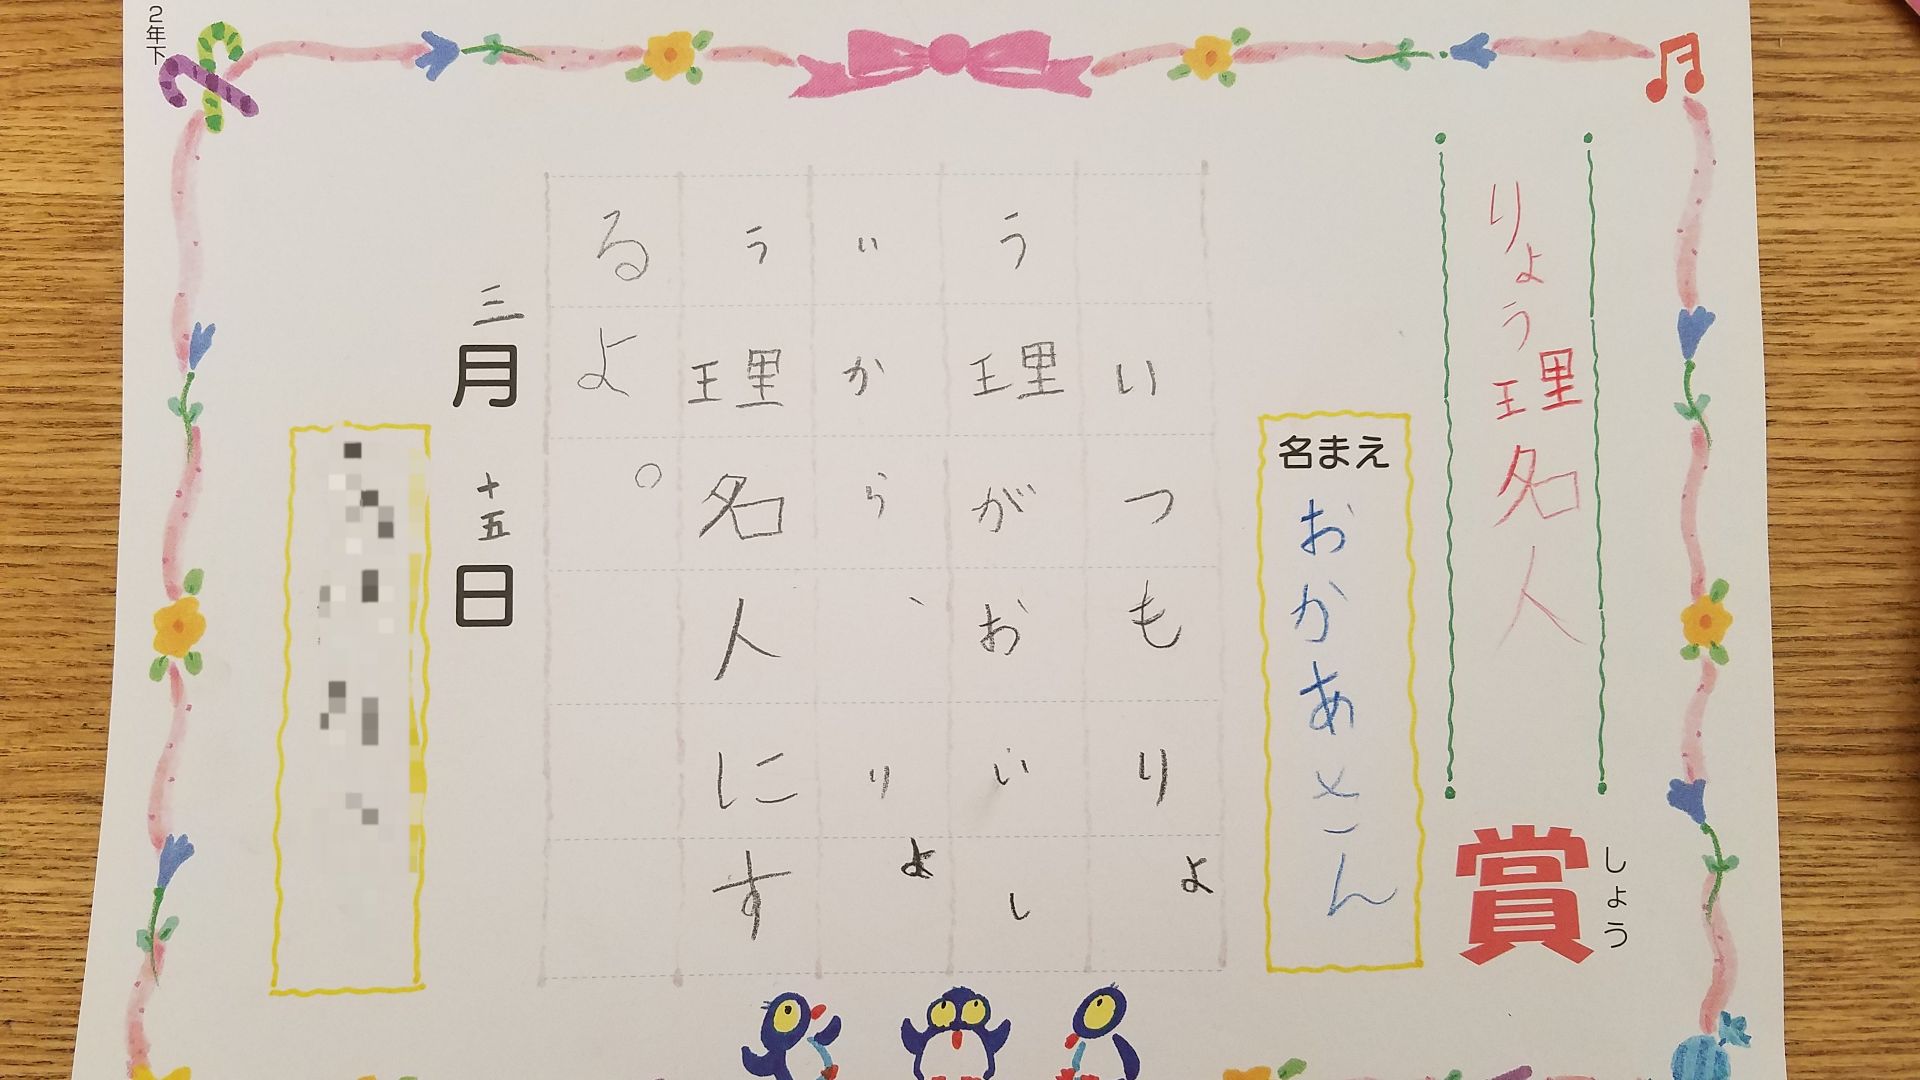 2年下
りょう理名人
賞
しょう
名まえ
おかあさん
いつもりょ
う理がおいし
いから、りょ
う理名人にす
るよ。
三月十五日